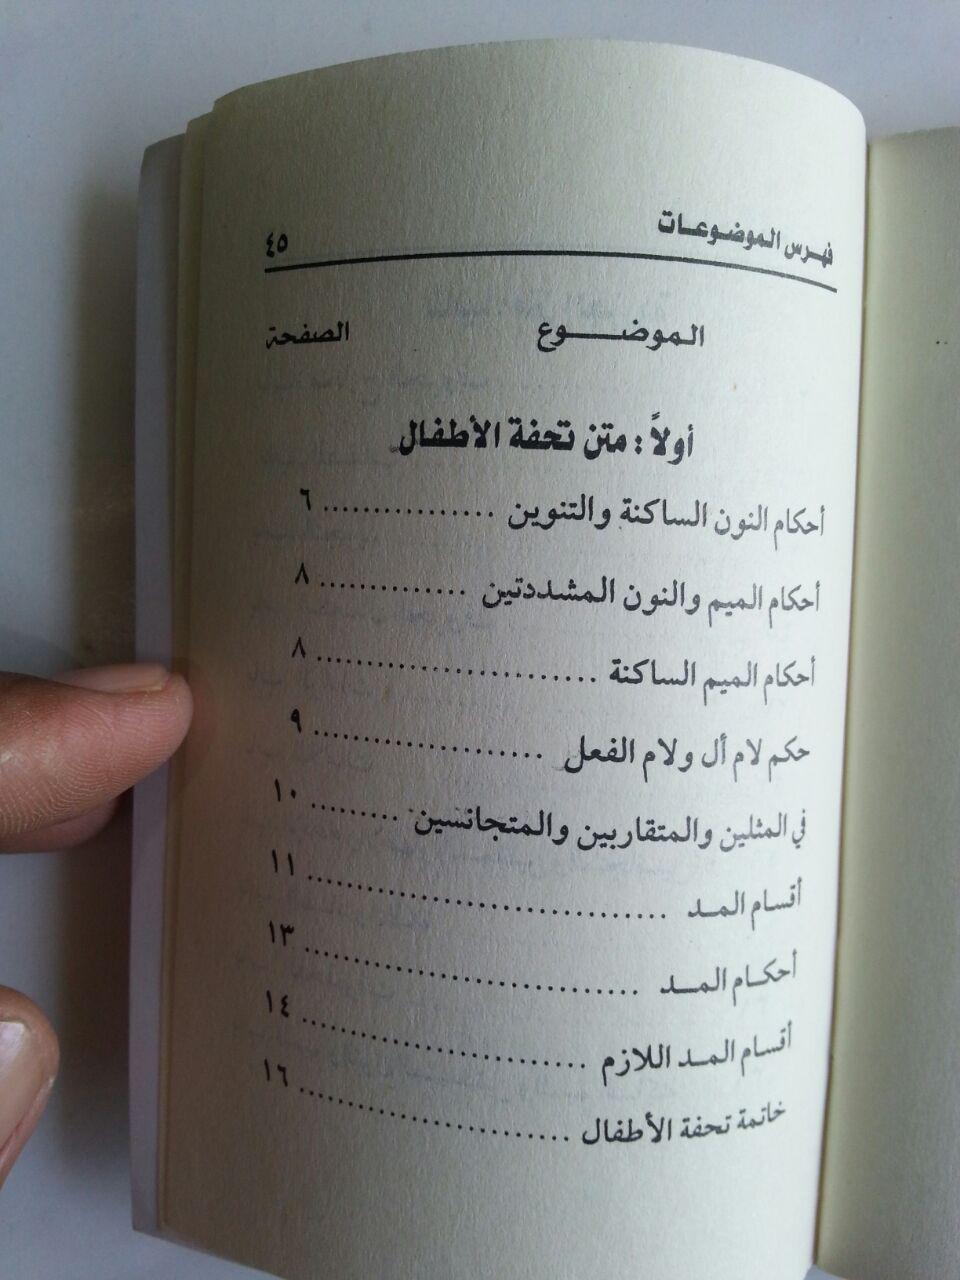 فهرس الموضوعات ٤٥
الموضـــــوع الصفحة
أولاً : متن تحفة الأطفال
أحكام النون الساكنة والتنوين ................ ٦
أحكام الميم والنون المشددتين .............. ٨
أحكام الميم الساكنة ........................... ٨
حكم لام أل ولام الفعل ...................... ٩
في المثلين والمتقاربين والمتجانسين ......... ١٠
أقسام المـد ................................... ١١
أحكـام المــد ................................ ١٣
أقسام المـد اللازم ........................... ١٤
خاتمة تحفة الأطفال .......................... ١٦